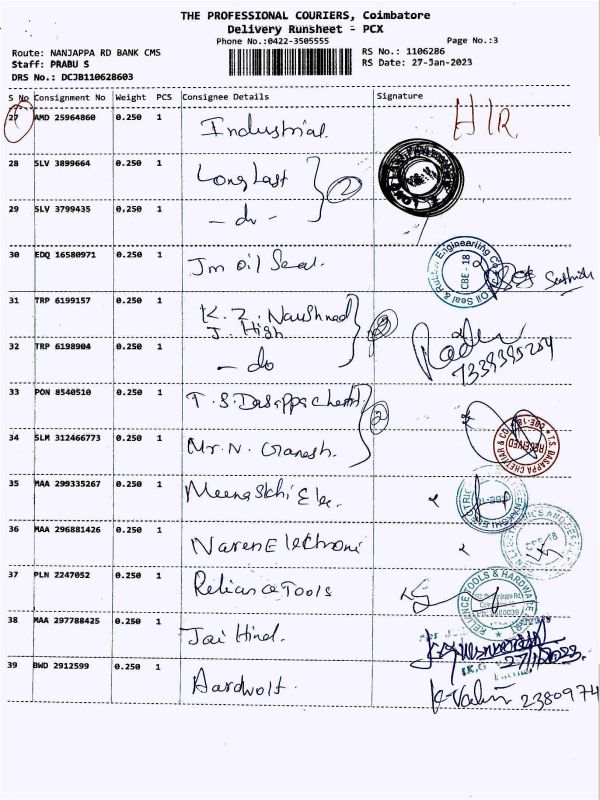 THE PROFESSIONAL COURIERS, Coimbatore
Delivery Runsheet - PCX
Phone No.:0422-3505555 Page No.:3
Route: NANJAPPA RD BANK CMS RS No.: 1106286
Staff: PRABU S RS Date: 27-Jan-2023
DRS No.: DCJB110628603
S No Consignment No Weight PCS Consignee Details Signature
27 AMD 25964860 0.250 1 Industrial
28 SLV 3899664 0.250 1 Long Last 2
29 SLV 3799435 0.250 1 - do -
30 EDQ 16580971 0.250 1 Jm oil Seal. Oil Seal & Rubber Engineering Co CBE - 18
31 TRP 6199157 0.250 1 K. Z. Naushned
J. High
32 TRP 6198904 0.250 1 - do Radha
7339395254
33 PON 8540510 0.250 1 T. S. Dasappa Chetti
34 SLM 312466773 0.250 1 Mr. N. Ganesh. T.S. DASAPPA CHETTIAR & CO. CBE-18 RECEIVED
35 MAA 299335267 0.250 1 Meenakshi Ele.
36 MAA 296881426 0.250 1 Naren Electroni
37 PLN 2247052 0.250 1 Reliance Tools RELIANCE TOOLS & HARDWARE
38 MAA 297788425 0.250 1 Jai Hind.
27/1/2023.
39 BWD 2912599 0.250 1 Aardwolf. 2380974